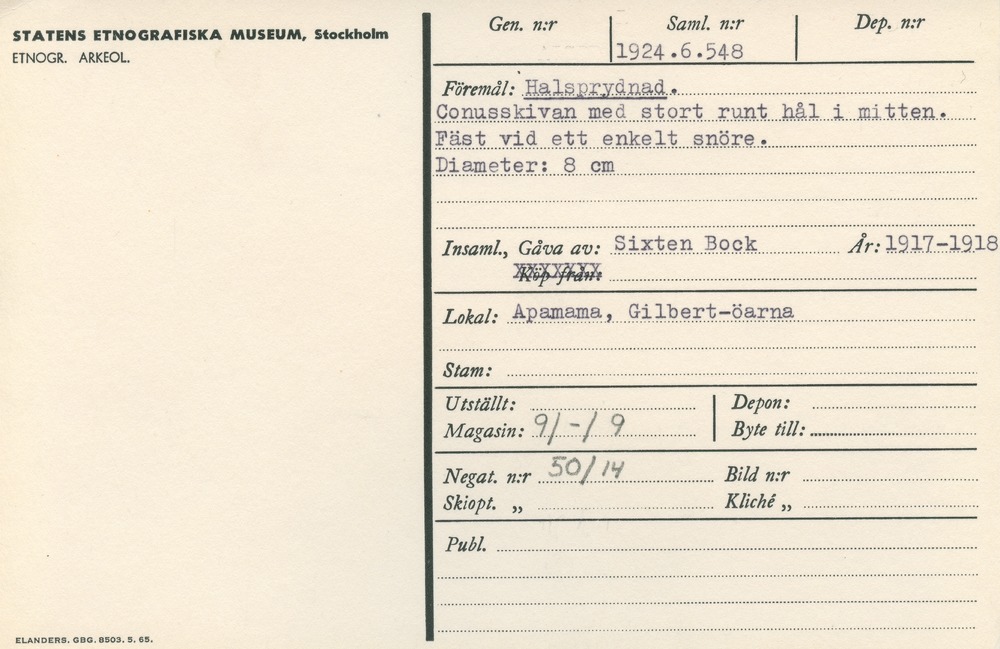 STATENS ETNOGRAFISKA MUSEUM, Stockholm
ETNOGR. ARKEOL.
Gen. n:r
Saml. n:r
Dep. n:r
1924.6.548
Föremål: Halsprydnad.
Conusskivan med stort runt hål i mitten.
Fäst vid ett enkelt snöre.
Diameter: 8 cm
Insaml., Gåva av: Sixten Bock År: 1917-1918
Köp från:
Lokal: Apamama, Gilbert-öarna
Stam:
Utställt:
Depon:
Magasin: 9/-/9
Byte till:
Negat. n:r 50/14
Bild n:r
Skiopt. „
Kliché „
Publ.
ELANDERS. GBG. 8503. 5. 65.